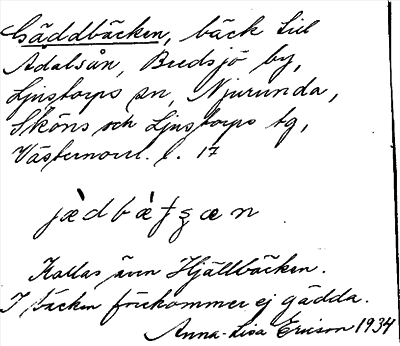 Gäddbäcken, bäck till
Adalsån, Bredsjö by,
Ljustorps sn, Njurunda,
Sköns och Ljustorps tg,
Västernorrl. l. 17
Kallas även Hjällbäcken.
I bäcken förekommer ej gädda.
Anna-Lisa Ericson 1934